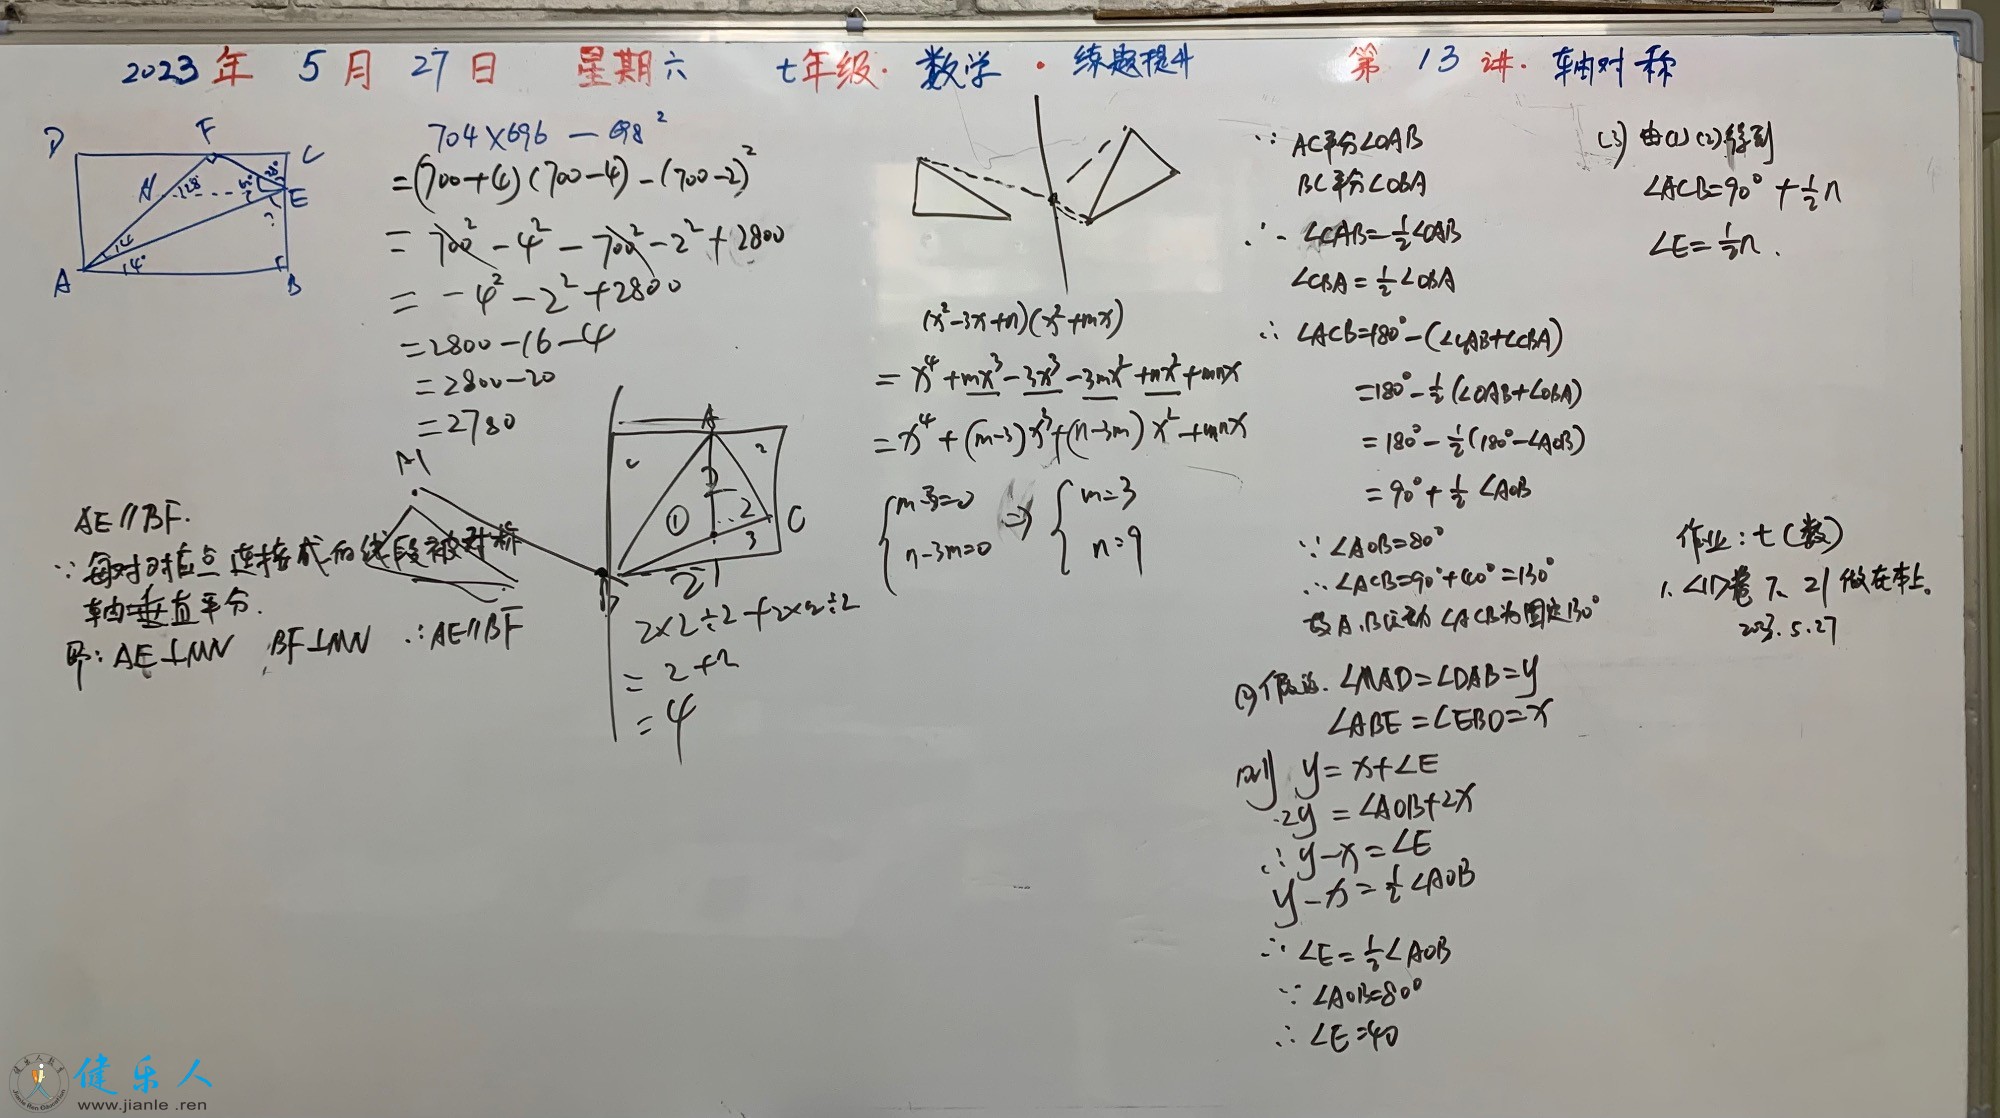 2023年 5月 27日 星期六 七年级·数学·练题提升 第13讲·轴对称
D F C
N 128° E
?
14
14°
A B
704×696 - 698²
=(700+4)(700-4)-(700-2)²
= 700²-4²-700²-2²+2800
= -4²-2²+2800
=2800-16-4
=2800-20
=2780
AE∥BF.
∵每对对应点连接成的线段被对称
轴垂直平分.
即: AE⊥MN BF⊥MN ∴AE∥BF
A
① 2 C
3
2×2÷2+2×2÷2
= 2+2
= 4
(x²-3x+n)(x²+mx)
= x⁴+mx³-3x³-3mx²+nx²+mnx
= x⁴+(m-3)x³+(n-3m)x²+mnx
{m-3=0 ⇒ {m=3
n-3m=0 n=9
∵ AC平分∠OAB
BC平分∠OBA
∴ ∠CAB=½∠OAB
∠CBA=½∠OBA
∴ ∠ACB=180°-(∠CAB+∠CBA)
=180°-½(∠OAB+∠OBA)
=180°-½(180°-∠AOB)
=90°+½∠AOB
∵ ∠AOB=80°
∴ ∠ACB=90°+40°=130°
故A.B运动 ∠ACB为固定130°
(2)假设. ∠MAD=∠DAB=y
∠ABE=∠EBO=x
则 y=x+∠E
2y=∠AOB+2x
∴ y-x=∠E
y-x=½∠AOB
∴ ∠E=½∠AOB
∵ ∠AOB=80°
∴ ∠E=40
(3) 由(1)(2)得到
∠ACB=90°+½n
∠E=½n.
作业:七(数)
1. 卷7、21做在本上。
2023.5.27
健乐人
www.jianle.ren